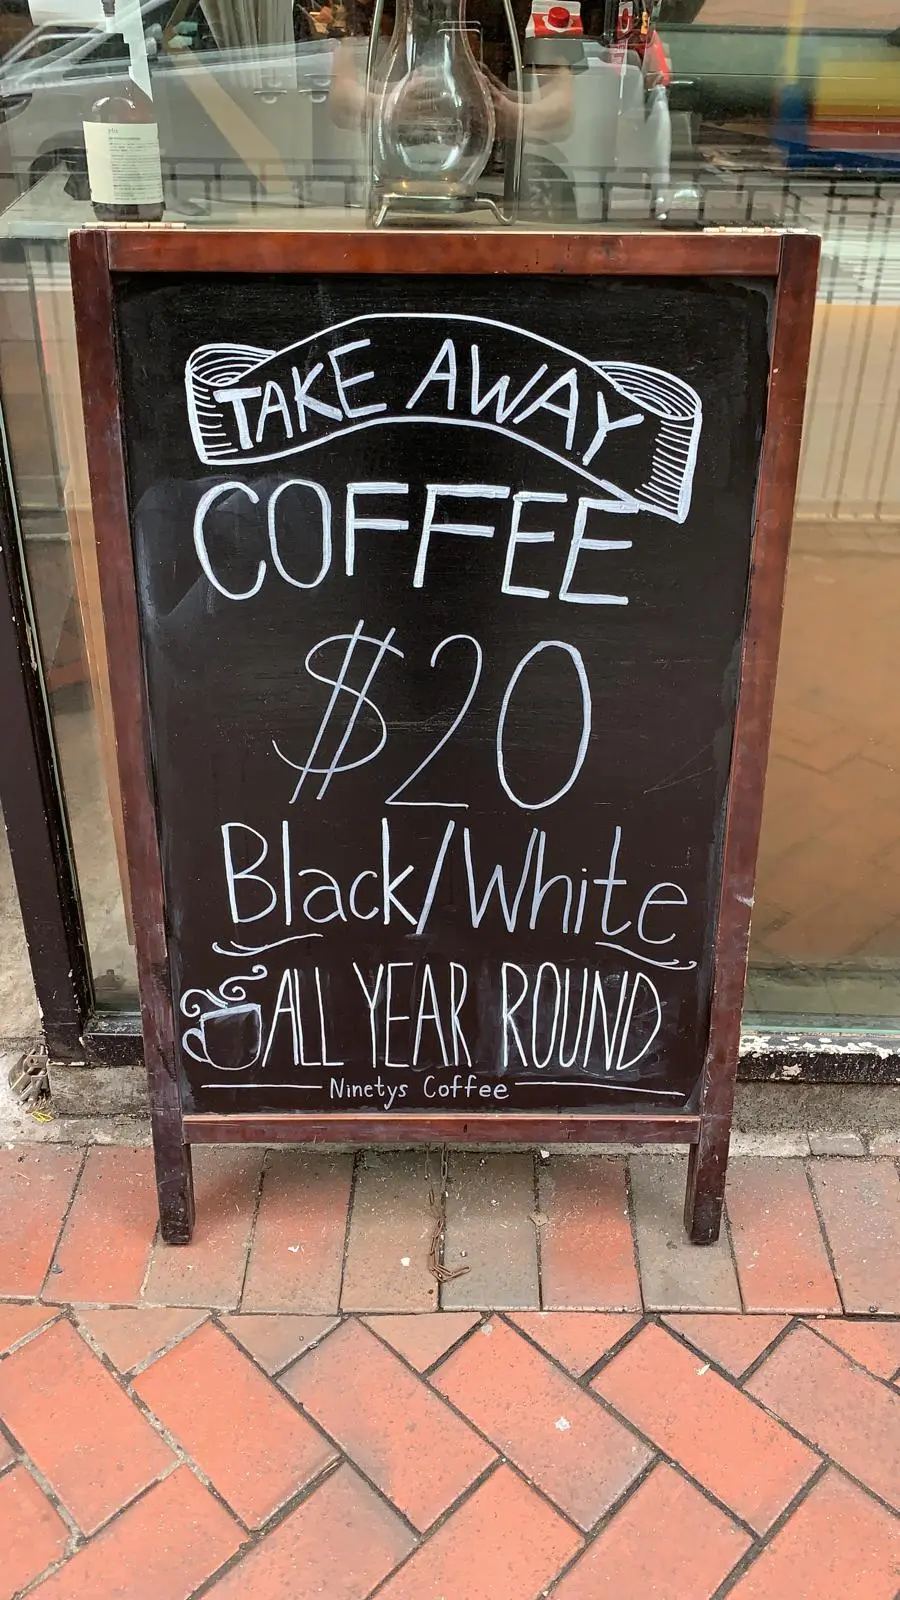 TAKE AWAY
COFFEE
$20
Black/White
ALL YEAR ROUND
Ninetys Coffee